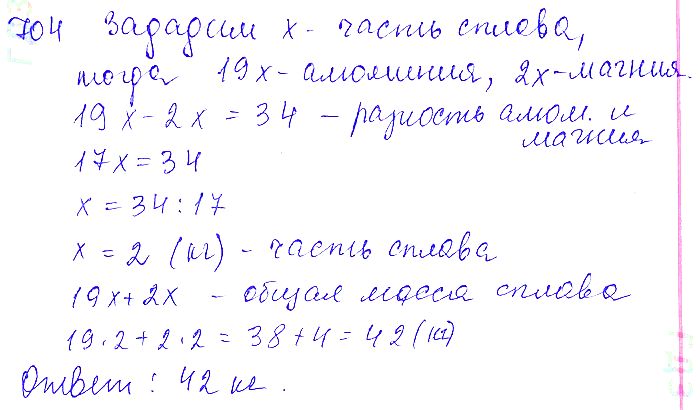 704 Зададим x - часть сплава,
тогда 19x - алюминия, 2x - магния.
19x - 2x = 34 - разность алюм. и
магния
17x = 34
x = 34 : 17
x = 2 (кг) - часть сплава
19x + 2x - общая масса сплава
19·2 + 2·2 = 38 + 4 = 42 (кг)
Ответ: 42 кг.